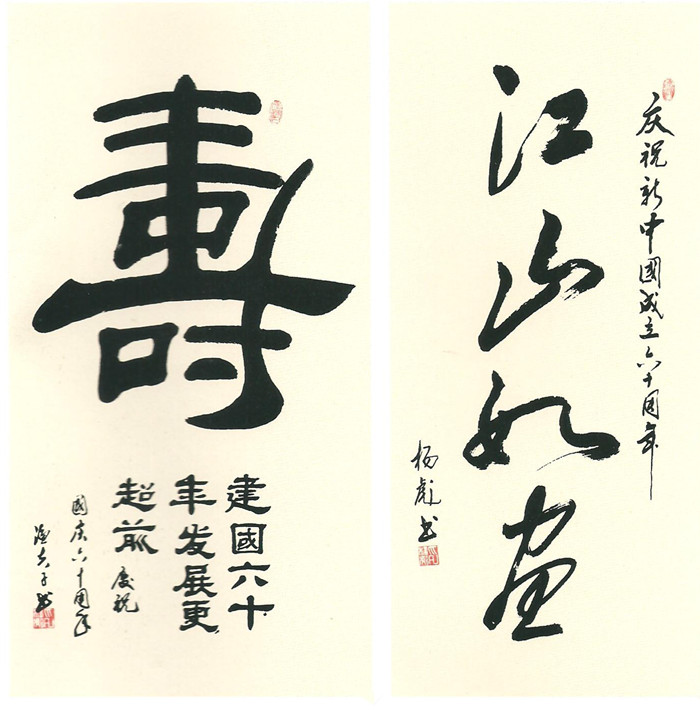 壽
建國六十
年发展更
超前 庆祝
國庆六十周年
庆祝新中國成立六十周年
江山如画
杨彪书